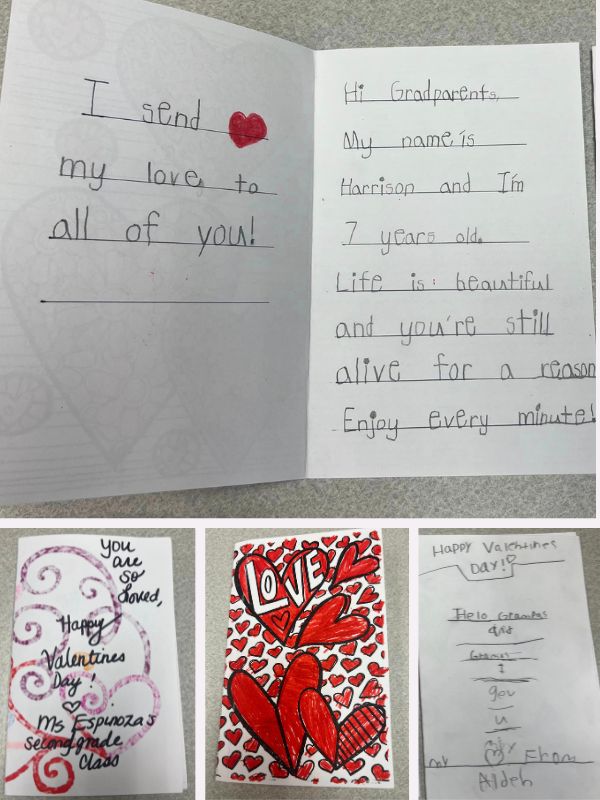 I send
my love to
all of you!
Hi Gradparents,
My name is
Harrison and I'm
7 years old.
Life is beautiful
and you're still
alive for a reason
Enjoy every minute!
you
are
so
loved,
Happy
Valentines
Day!
Ms Espinoza's
second grade
Class
LOVE
Happy Valentines
Day!
Helo Grampas
and
I
u
From